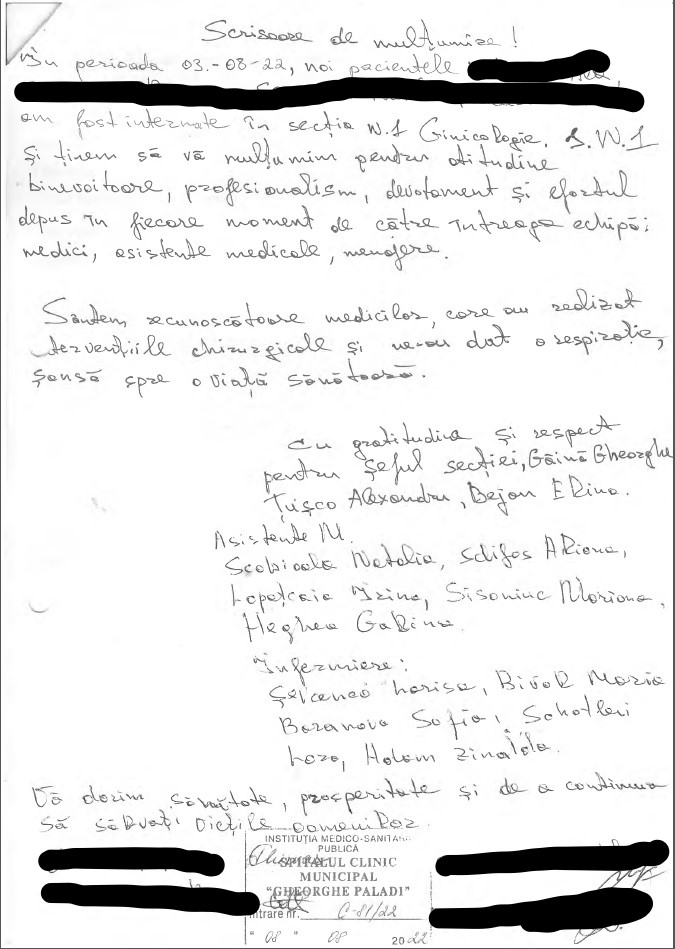 Scrisoare de mulțumire!
În perioada 03.-08-22, noi pacientele
am fost internate în secția N.1 Ginicologie. S.N.1
și ținem să vă mulțumim pentru atitudine
binevoitoare, profesionalism, devotament și efortul
depus în fiecare moment de către întreaga echipă:
medici, asistente medicale, menajere.
Sântem recunoscătoare medicilor, care au realizat
tervențiile chirurgicale și ne-au dat o respirație,
șansă spre o viață sănătoasă.
Cu gratitudine și respect
pentru șeful secției, Găină Gheorghe
Țușco Alexandru, Bejan Elina.
Asistente M.
Scobioala Natalia, Sclifos Aliona,
Lopațcaia Irina, Sisoniuc Mariana,
Heghea Galina.
Infermiere:
Șevcenco Larisa, Bivol Maria
Baranova Sofia, Sohotleri
Lara, Halam Zinaida.
Vă dorim sănătate, prosperitate și de a continua
să salvați viețile oamenilor.
INSTITUȚIA MEDICO-SANITARĂ
PUBLICĂ
SPITALUL CLINIC
MUNICIPAL
"GHEORGHE PALADI"
Intrare nr. C-81/22
"08" 08 2022